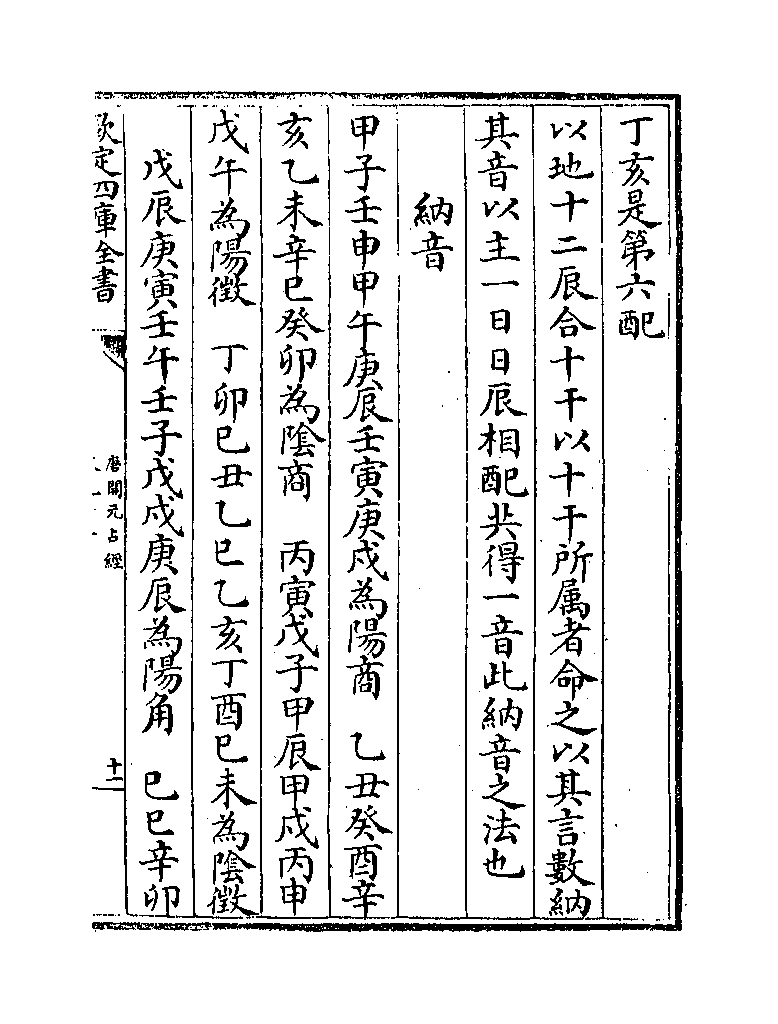 丁亥是第六配
以地十二辰合十干以十干所属者命之以其言數納
其音以主一日日辰相配共得一音此納音之法也
納音
甲子壬申甲午庚辰壬寅庚戍為陽商　乙丑癸酉辛
亥乙未辛巳癸卯為陰商　丙寅戊子甲辰甲戍丙申
戊午為陽徵　丁卯巳丑乙巳乙亥丁酉巳未為陰徵
戊辰庚寅壬午壬子戊戍庚辰為陽角　巳巳辛卯
欽定四庫全書
唐開元占經
十一